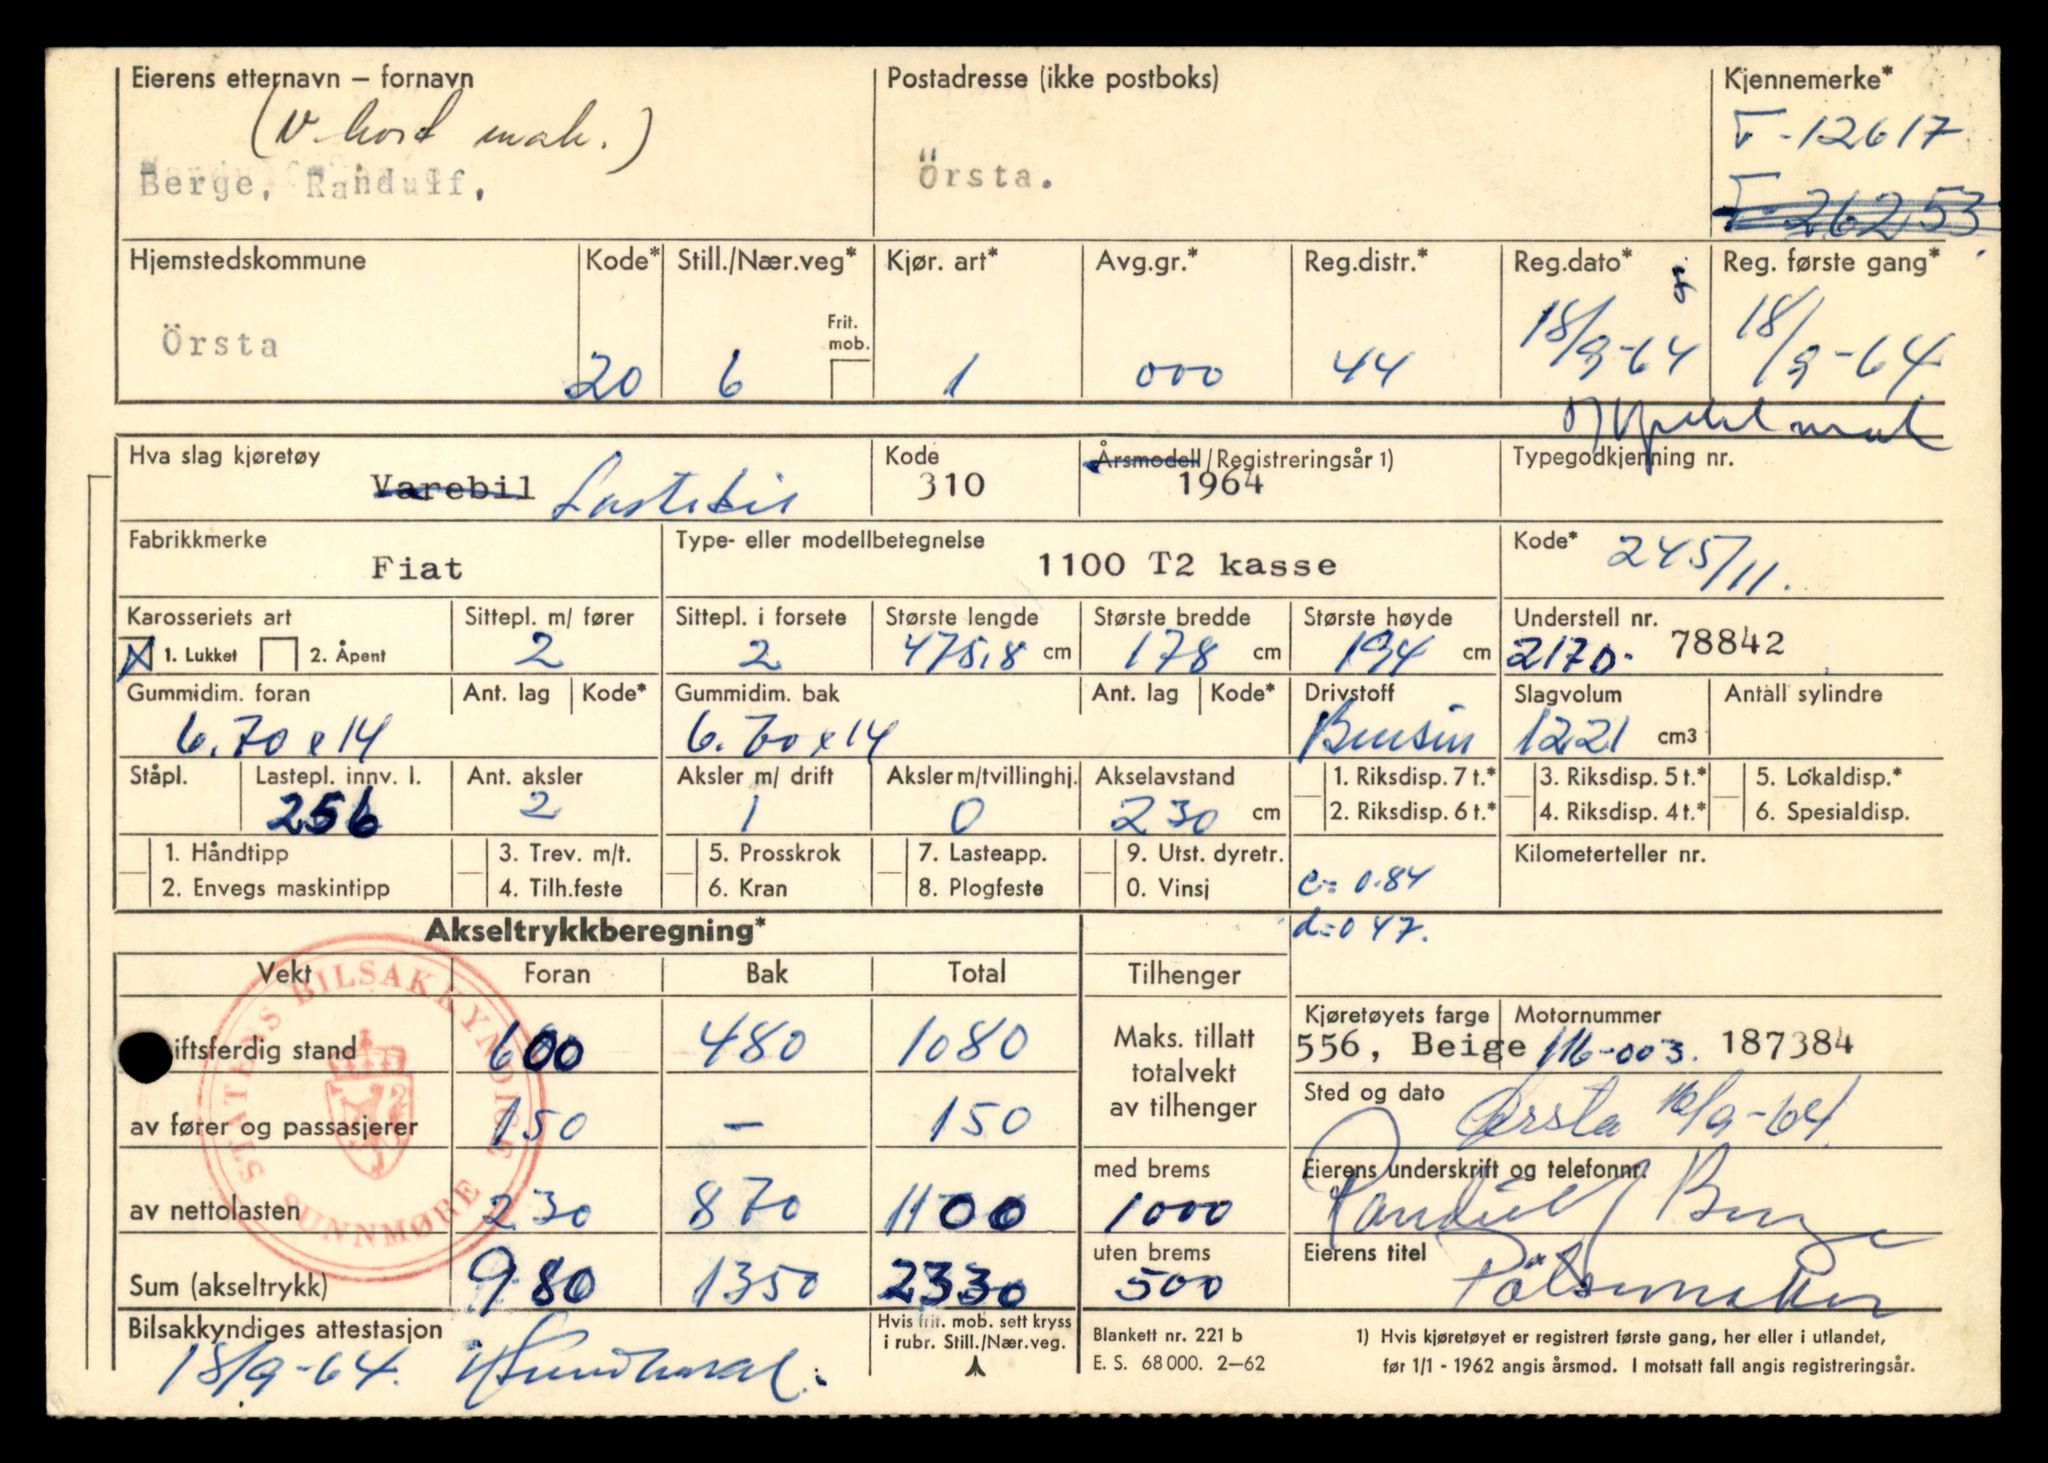 Eierens etternavn – fornavn
Postadresse (ikke postboks)
Kjennemerke*
Berge, Randulf,
Örsta.
T-12617
T-26253
Hjemstedskommune
Kode*
Still./Nær.veg*
Kjør. art*
Avg.gr.*
Reg.distr.*
Reg.dato*
Reg. første gang*
Frit. mob.
Örsta
20
6
1
000
44
18/9-64
18/9-64
Hva slag kjøretøy
Varebil Lastebil
Kode
310
Årsmodell/Registreringsår 1)
1964
Typegodkjenning nr.
Fabrikkmerke
Fiat
Type- eller modellbetegnelse
1100 T2 kasse
Kode*
245/11.
Karosseriets art
X 1. Lukket
2. Åpent
Sittepl. m/ fører
2
Sittepl. i forsete
2
Største lengde
475,8 cm
Største bredde
178 cm
Største høyde
194 cm
Understell nr.
2170- 78842
Gummidim. foran
6.70x14
Ant. lag
Kode*
Gummidim. bak
6.70x14
Ant. lag
Kode*
Drivstoff
Bensin
Slagvolum
1221 cm3
Antall sylindre
Ståpl.
Lastepl. innv. l.
256
Ant. aksler
2
Aksler m/ drift
1
Aksler m/tvillinghj.
0
Akselavstand
230 cm
1. Riksdisp. 7 t.*
2. Riksdisp. 6 t.*
3. Riksdisp. 5 t.*
4. Riksdisp. 4 t.*
5. Lokaldisp.*
6. Spesialdisp.
1. Håndtipp
2. Envegs maskintipp
3. Trev. m/t.
4. Tilh.feste
5. Prosskrok
6. Kran
7. Lasteapp.
8. Plogfeste
9. Utst. dyretr.
0. Vinsj
c= 0.84
d=0 47.
Kilometerteller nr.
Akseltrykkberegning*
Vekt
Foran
Bak
Total
Tilhenger
iftsferdig stand
600
480
1080
Maks. tillatt
totalvekt
av tilhenger
Kjøretøyets farge
556, Beige
Motornummer
116-003. 187384
av fører og passasjerer
150
–
150
Sted og dato
Ørsta 16/9-64
av nettolasten
230
870
1100
med brems
1000
Eierens underskrift og telefonnr.
Randulf Berge
Sum (akseltrykk)
980
1350
2330
uten brems
500
Eierens titel
Pölsemaker
Bilsakkyndiges attestasjon
18/9-64.
Hvis frit. mob. sett kryss
i rubr. Still./Nær.veg.
Blankett nr. 221 b
E. S. 68 000. 2–62
1) Hvis kjøretøyet er registrert første gang, her eller i utlandet,
før 1/1 - 1962 angis årsmod. I motsatt fall angis registreringsår.
STATENS BILSAKKYNDIGE
SUNNMØRE